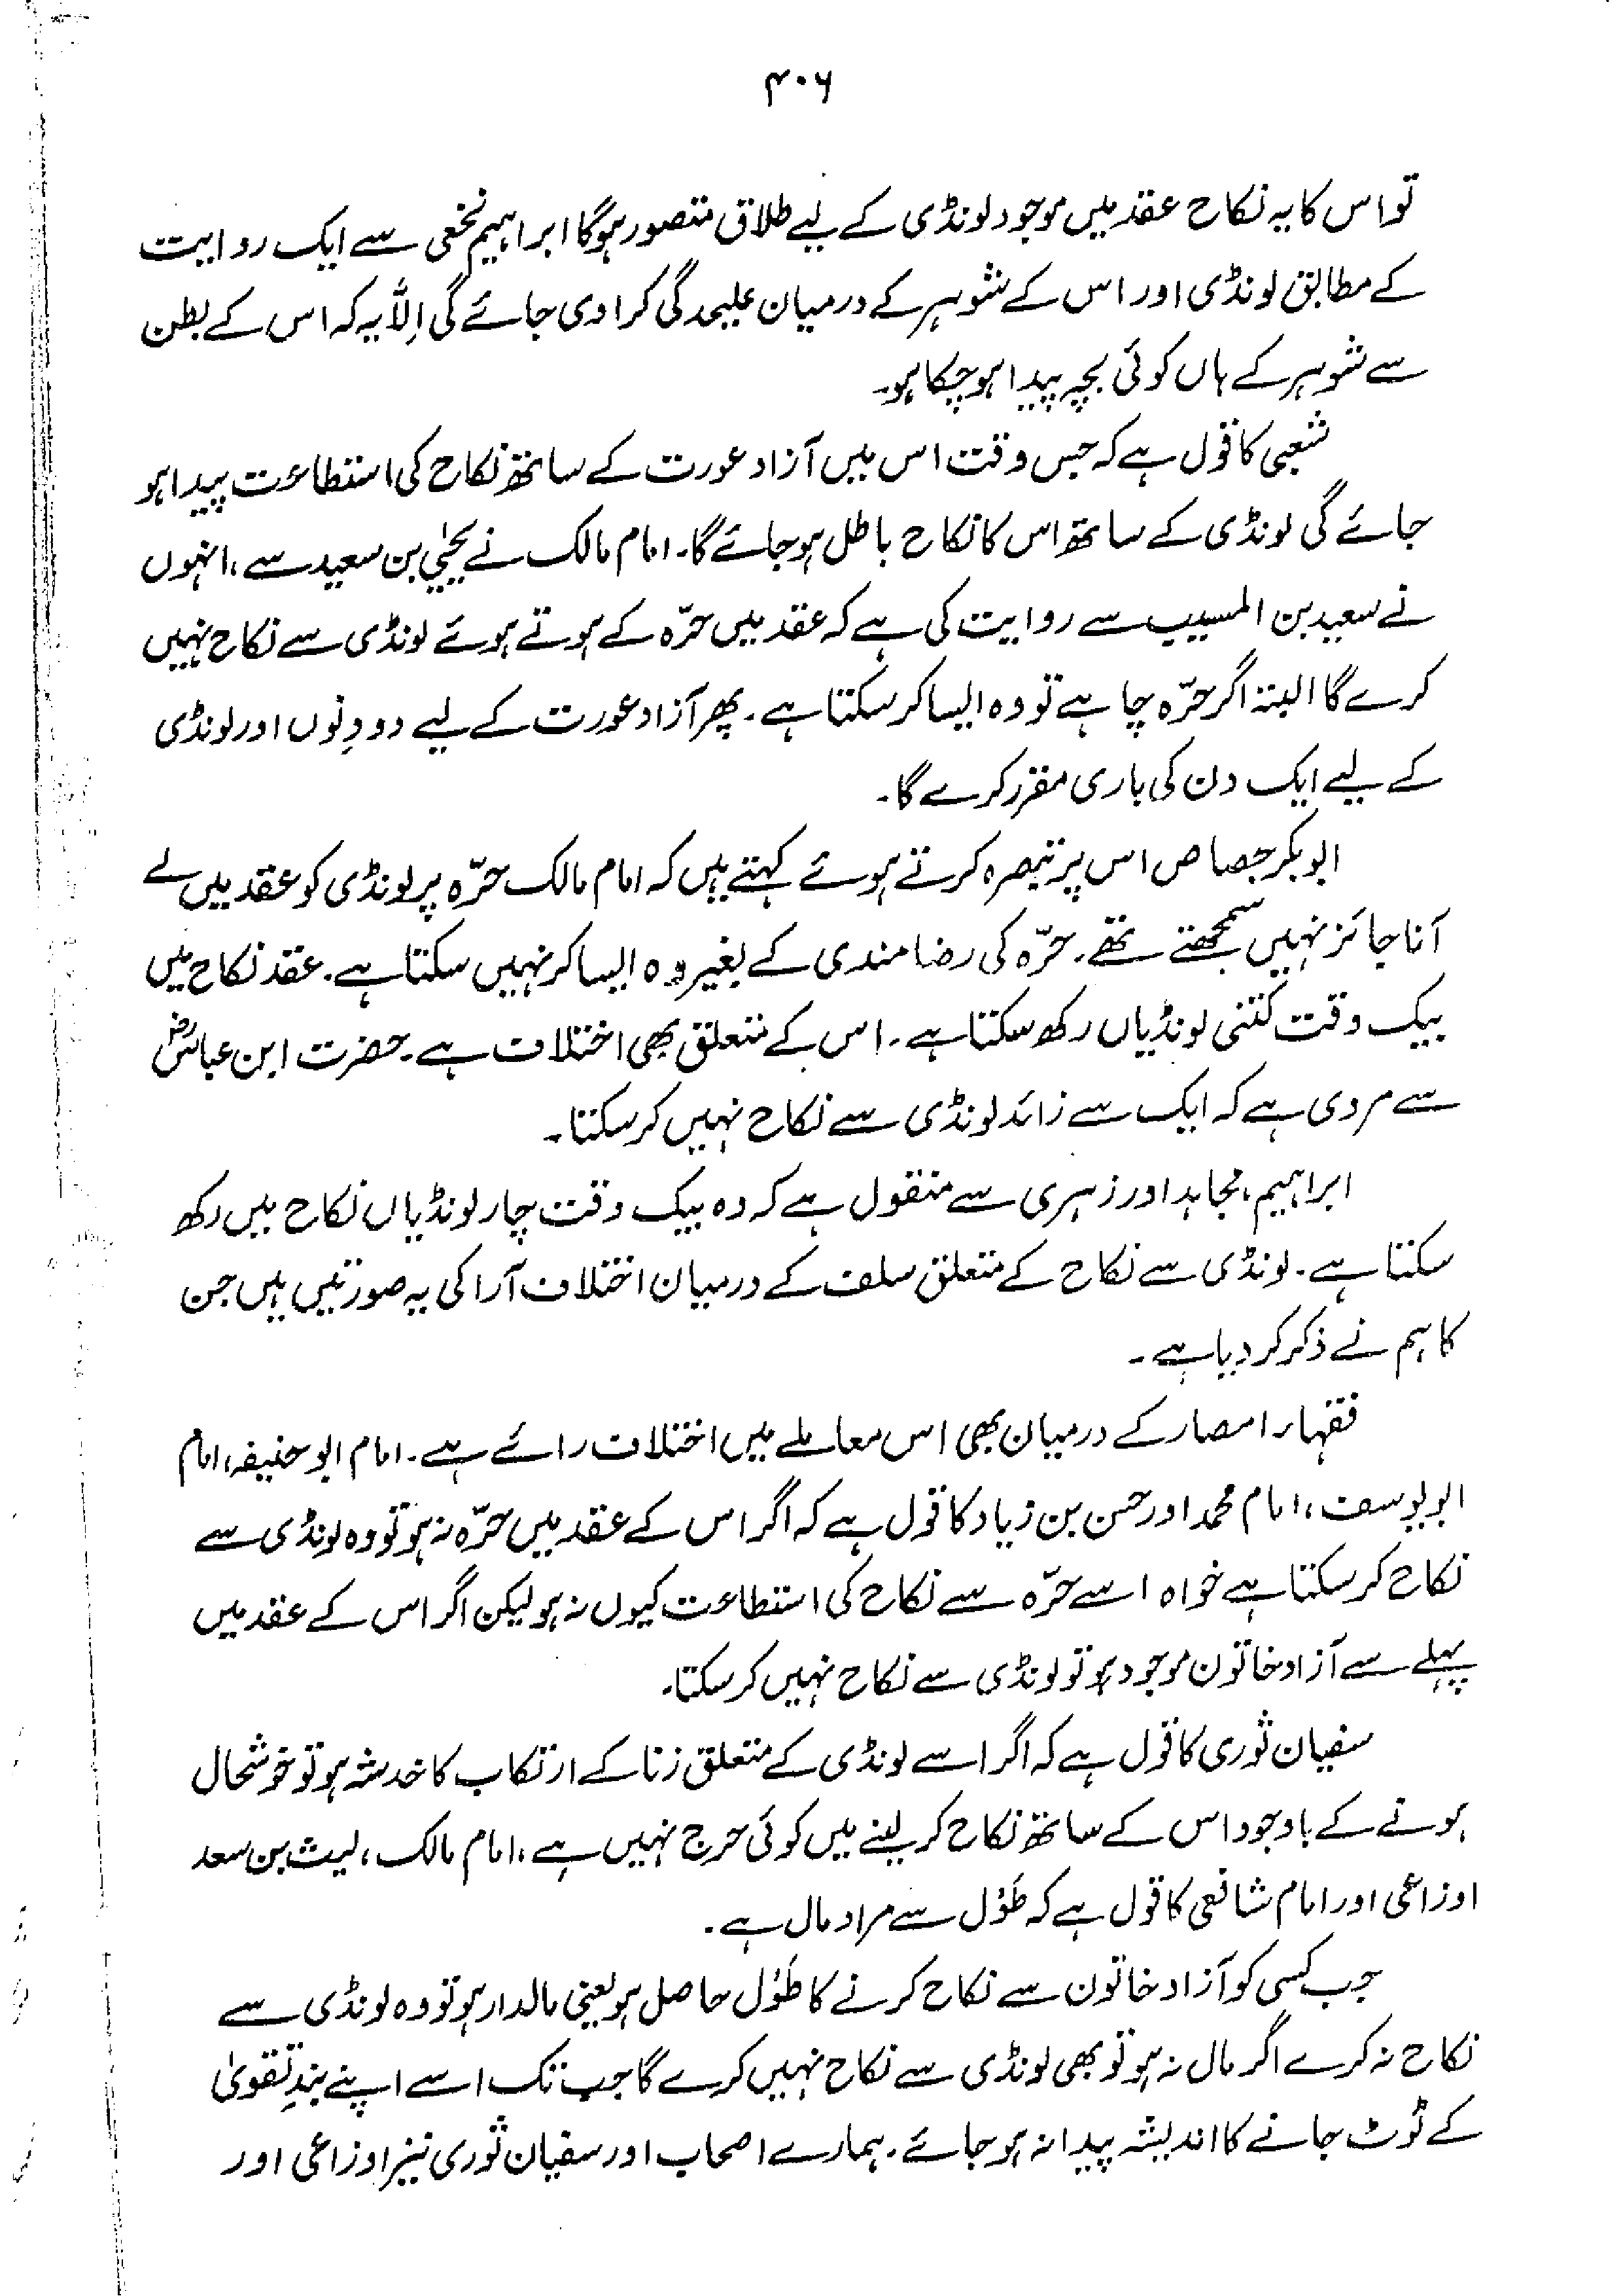 ۴۰۶
تو اس کا یہ نکاح عقد میں موجود لونڈی کے لیے طلاق متصور ہوگا ابراہیم نخعی سے ایک روایت
کے مطابق لونڈی اور اس کے شوہر کے درمیان علیحدگی کرا دی جائے گی اِلّا یہ کہ اس کے بطن
سے شوہر کے ہاں کوئی بچہ پیدا ہو چکا ہو۔
شعبی کا قول ہے کہ جس وقت اس میں آزاد عورت کے ساتھ نکاح کی استطاعت پیدا ہو
جائے گی لونڈی کے ساتھ اس کا نکاح باطل ہو جائے گا۔ امام مالک نے یحییٰ بن سعید سے، انہوں
نے سعید بن المسیب سے روایت کی ہے کہ عقد میں حرّہ کے ہوتے ہوئے لونڈی سے نکاح نہیں
کرے گا البتہ اگر حرّہ چاہے تو وہ ایسا کر سکتا ہے۔ پھر آزاد عورت کے لیے دو دِنوں اور لونڈی
کے لیے ایک دن کی باری مقرر کرے گا۔
ابوبکر جصاص اس پر تبصرہ کرتے ہوئے کہتے ہیں کہ امام مالک حرّہ پر لونڈی کو عقد میں لے
آنا جائز نہیں سمجھتے تھے۔ حرّہ کی رضامندی کے بغیر وہ ایسا کر نہیں سکتا ہے۔ عقد نکاح میں
بیک وقت کتنی لونڈیاں رکھ سکتا ہے۔ اس کے متعلق بھی اختلاف ہے۔ حضرت ابن عباسؓ
سے مروی ہے کہ ایک سے زائد لونڈی سے نکاح نہیں کر سکتا۔
ابراہیم، مجاہد اور زہری سے منقول ہے کہ وہ بیک وقت چار لونڈیاں نکاح میں رکھ
سکتا ہے۔ لونڈی سے نکاح کے متعلق سلف کے درمیان اختلاف آرا کی یہ صورتیں ہیں جن
کا ہم نے ذکر کر دیا ہے۔
فقہاء امصار کے درمیان بھی اس معاملے میں اختلاف رائے ہے۔ امام ابو حنیفہ، امام
ابو یوسف، امام محمد اور حسن بن زیاد کا قول ہے کہ اگر اس کے عقد میں حرّہ نہ ہو تو وہ لونڈی سے
نکاح کر سکتا ہے خواہ اسے حرّہ سے نکاح کی استطاعت کیوں نہ ہو لیکن اگر اس کے عقد میں
پہلے سے آزاد خاتون موجود ہو تو لونڈی سے نکاح نہیں کر سکتا۔
سفیان ثوری کا قول ہے کہ اگر اسے لونڈی کے متعلق زنا کے ارتکاب کا خدشہ ہو تو خوشحال
ہونے کے باوجود اس کے ساتھ نکاح کر لینے میں کوئی حرج نہیں ہے، امام مالک، لیث بن سعد
اوزاعی اور امام شافعی کا قول ہے کہ طَوْل سے مراد مال ہے۔
جب کسی کو آزاد خاتون سے نکاح کرنے کا طَوْل حاصل ہو یعنی مالدار ہو تو وہ لونڈی سے
نکاح نہ کرے اگر مال نہ ہو تو بھی لونڈی سے نکاح نہیں کرے گا جب تک اسے اپنے بندِ تقویٰ
کے ٹوٹ جانے کا اندیشہ پیدا نہ ہو جائے۔ ہمارے اصحاب اور سفیان ثوری نیز اوزاعی اور